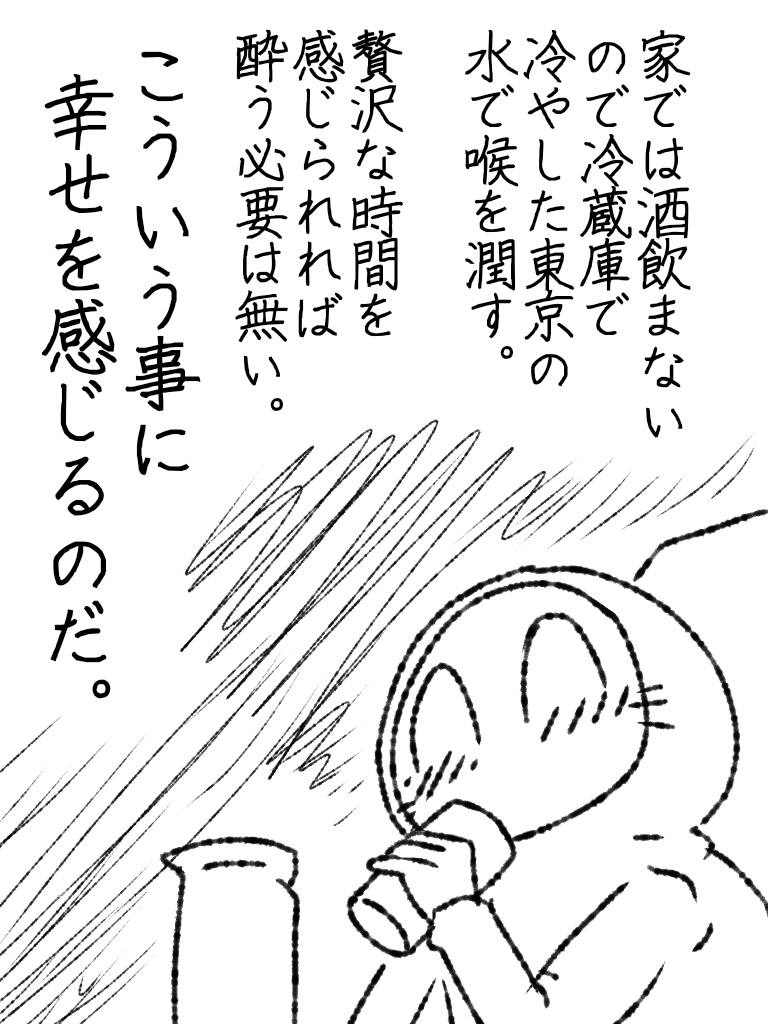 家では酒飲まない
ので冷蔵庫で
冷やした東京の
水で喉を潤す。
贅沢な時間を
感じられれば
酔う必要は無い。
こういう事に
幸せを感じるのだ。